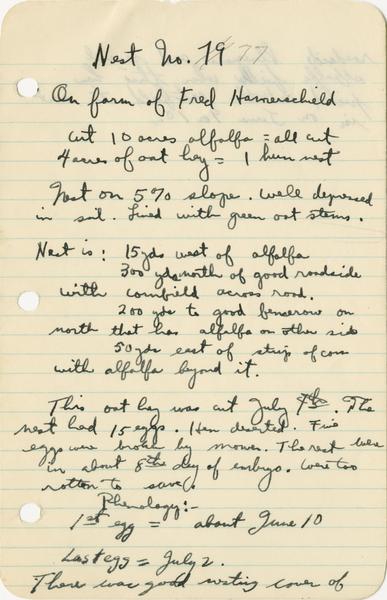 Nest No. 79 77
On farm of Fred Hamerschield
cut 10 acres alfalfa = all cut
4 acres of oat hay = 1 hun nest
Nest on 5% slope. Well depressed
in soil. Lined with green oat stems.
Nest is: 15 yds west of alfalfa
300 yds north of good roadside
with cornfield across road.
200 yds to good fencerow on
north that has alfalfa on other side
50 yds east of strip of corn
with alfalfa beyond it.
This oat hay was cut July 7th. The
nest had 15 eggs. Hen deserted. Five
eggs were broken by mower. The rest were
in about 8th day of embryo. Were too
rotten to save
Phenology:-
1st egg = about June 10
Last egg = July 2.
There was good nesting cover of